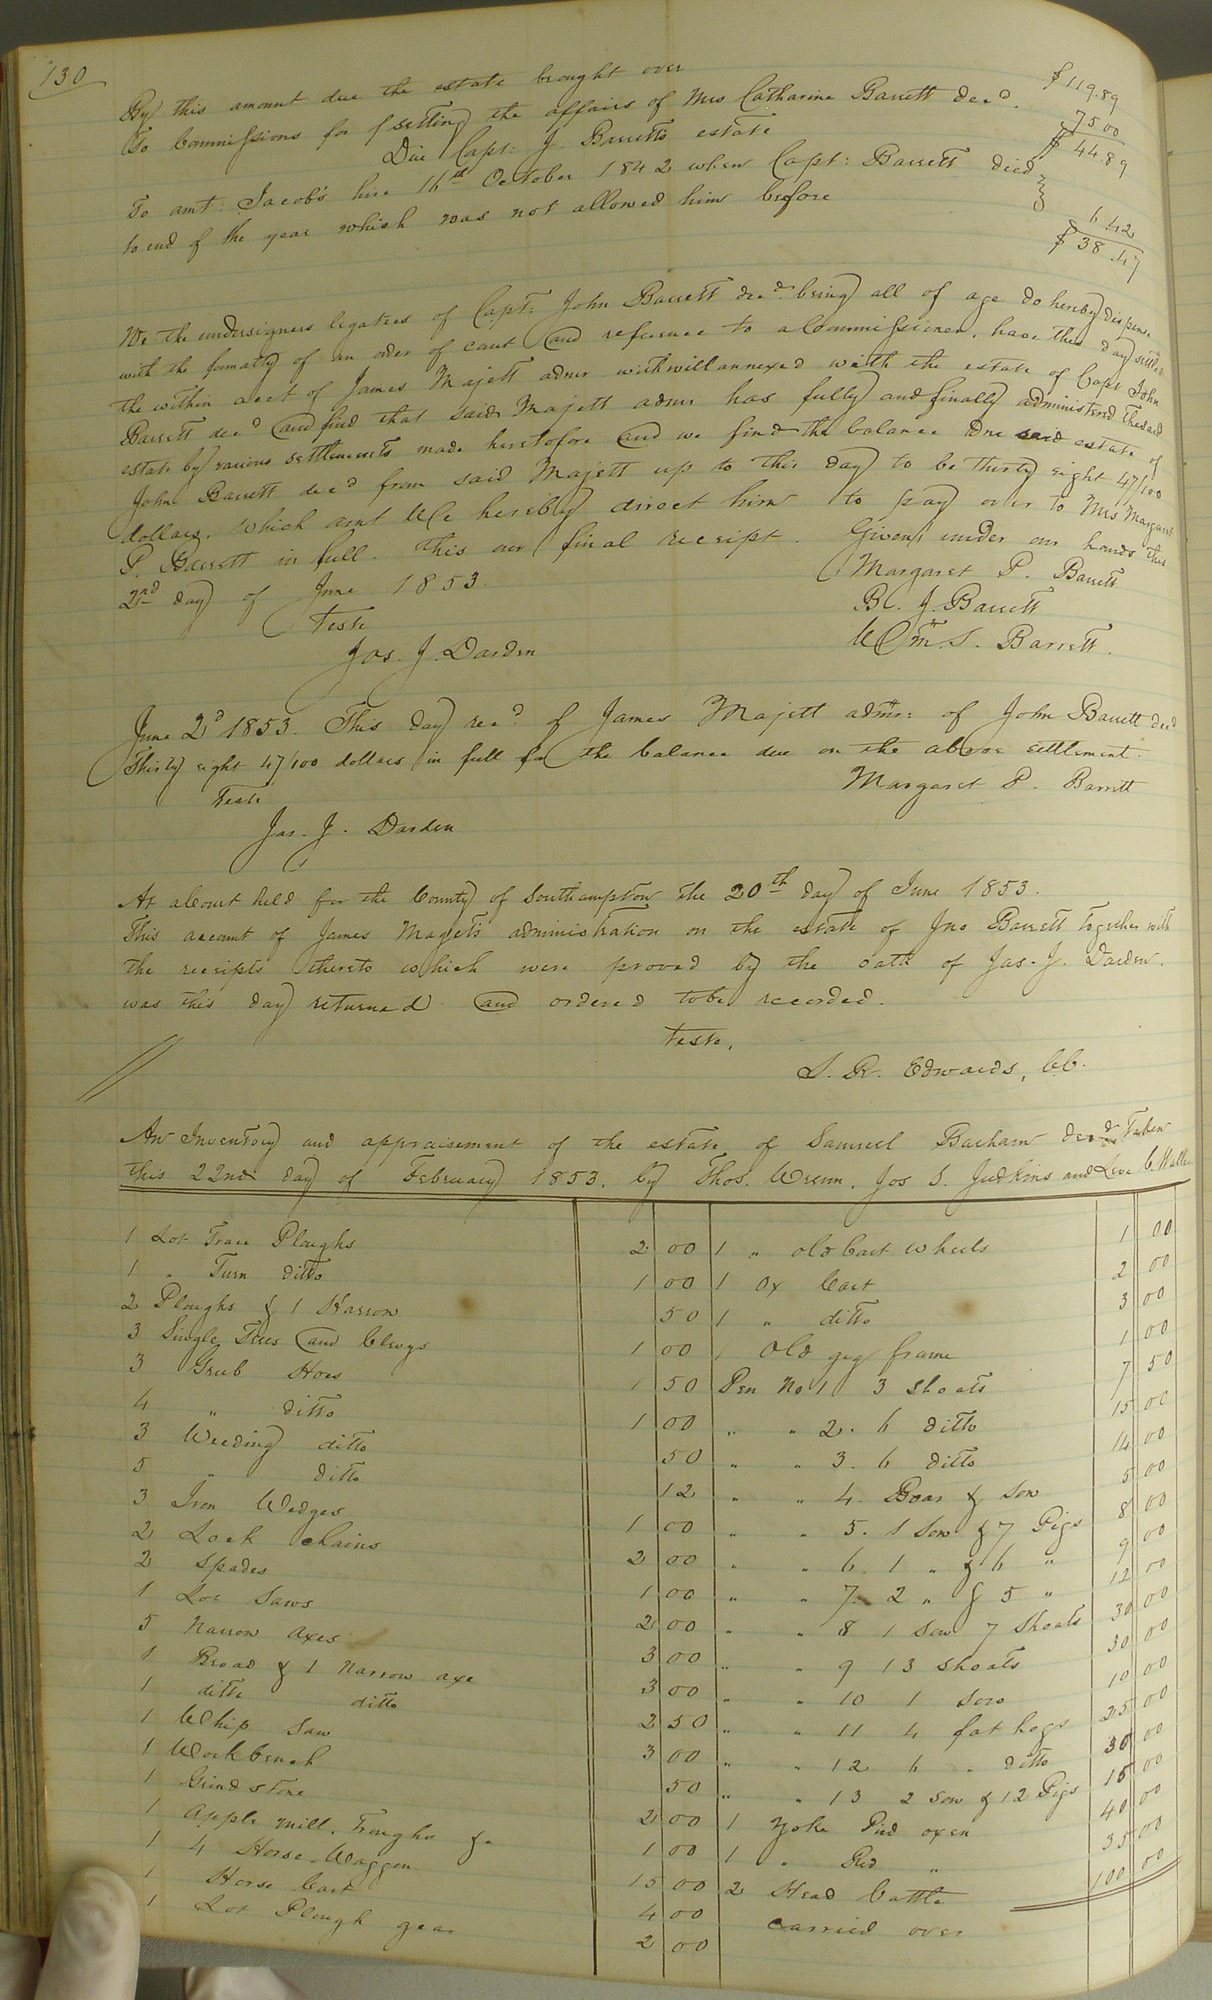 130
By this amount due the estate brought over $119.89
To Commissions for settling the affairs of Mrs Catharine Barrett decd. 75 00
Due Capt: J. Barretts estate $ 44.89
To amt: Jacob's hire 16th October 1842 when Capt: Barrett died
to end of the year which was not allowed him before 6 42
$ 38.47
We the undersigners legatees of Capt: John Barrett decd. being all of age do hereby dispense
with the formalty of an order of court and reference to a Commissioner, have this day settled
the within acct of James Majett admr with will annexed with the estate of Capt John
Barrett decd and find that said Majett admr has fully and finally administered the said
estate by various settlements made heretofore and we find the balance due said estate of
John Barrett decd from said Majett up to this day to be thirty eight 47/100
dollars, which amt We hereby direct him to pay over to Mrs Margaret
P. Barrett in full. this our final receipt. Given under our hands this
2nd day of June 1853.
Margaret P. Barrett
Teste
B. J. Barrett
Jos. J. Darden
Wm. S. Barrett.
June 2d 1853. This day recd of James Majett admr: of John Barrett decd
Thirty eight 47/100 dollars in full for the balance due on the above settlement.
Teste
Margaret P. Barrett
Jas. J. Darden
At a Court held for the County of Southampton the 20th day of June 1853.
This account of James Magets administration on the estate of Jno Barrett together with
the receipts thereto which were proved by the oath of Jas. J. Darden.
was this day returned and ordered to be recorded.
Teste,
L. R. Edwards, CC.
An Inventory and appraisement of the estate of Samuel Barham decd. Taken
this 22nd day of February 1853. by Thos. Wrenn, Jos S. Judkins and C.
1 Lot Trace Ploughs 2 00
1 " Turn ditto 1 00
2 Ploughs & 1 Harrow 50
3 Single Trees and Clevys 1 00
3 Grub Hoes 1 50
4 " ditto 1 00
3 Weeding ditto 50
5 " ditto 12
3 Iron Wedges 1 00
2 Lock chains 2 00
2 Spades 1 00
1 Lot Saws 2 00
5 Narrow axes 3 00
1 Broad & 1 Narrow axe 3 00
1 ditto ditto 2 50
1 Whip Saw 3 00
1 Workbench 50
1 Grind stone 2 00
1 Apple mill, Troughs &c 1 00
1 4 Horse Waggon 15 00
1 Horse Cart 4 00
1 Lot Plough gear 2 00
1 " old Cart wheels 1 00
1 Ox Cart 2 00
1 " ditto 3 00
1 Old gig frame 1 00
Pen No 1 3 Shoats 7 50
" " 2. 6 ditto 15 00
" " 3. 6 ditto 14 00
" " 4. Boar & Sow 5 00
" " 5. 1 Sow & 7 Pigs 8 00
" " 6. 1 " & 6 " 9 00
" " 7. 2 " & 5 " 12 00
" " 8 1 Sow 7 Shoats 30 00
" " 9 13 Shoats 30 00
" " 10 1 Sow 10 00
" " 11 4 fat hogs 25 00
" " 12 6 " ditto 30 00
" " 13 2 Sow & 12 Pigs 15 00
1 Yoke Pied oxen 40 00
1 " Red " 35 00
2 Head Cattle 100 00
carried over